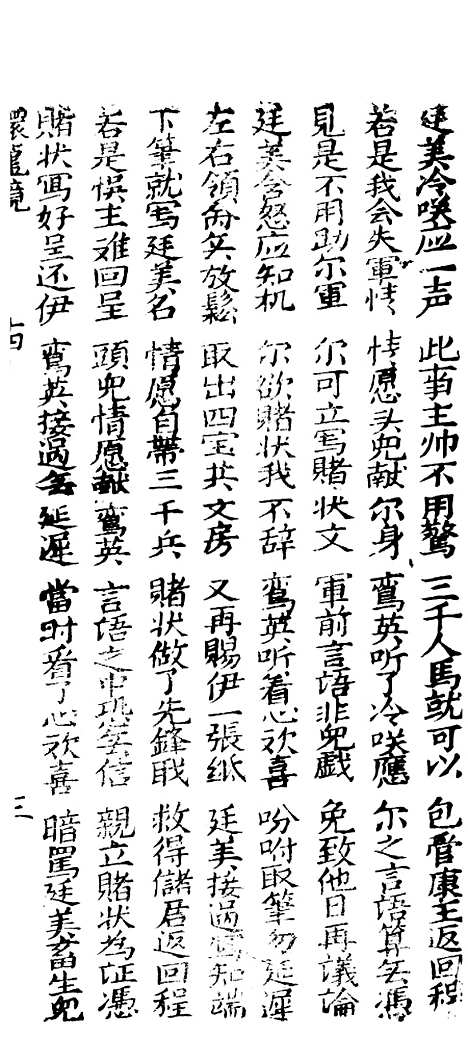 廷美冷咲应一声 此事主帅不用驚 三千人馬就可以 包管康王返回程
若是我会失軍情 情愿头児献尔身 鸾英听了冷咲應 尔之言語算無憑
見是不用助尔軍 尔可立寫賭状文 軍前言語非児戯 免致他日再議論
廷美含怒应知机 尔欲賭状我不辞 鸾英听着心欢喜 吩咐取筆勿延遲
左右領命無放鬆 取出四宝共文房 又再賜伊一張纸 廷美接过 知端
下筆就寫廷美名 情愿自帶三千兵 賭状做了先鋒戝 救得儲君返回程
若是悮主难回呈 頭児情愿献鸾英 言語之中 無信 親立賭状為证憑
賭状寫好呈还伊 鸾英接过無延遲 當时看了心欢喜 暗罵廷美畜生児
環龍鏡 十四 三